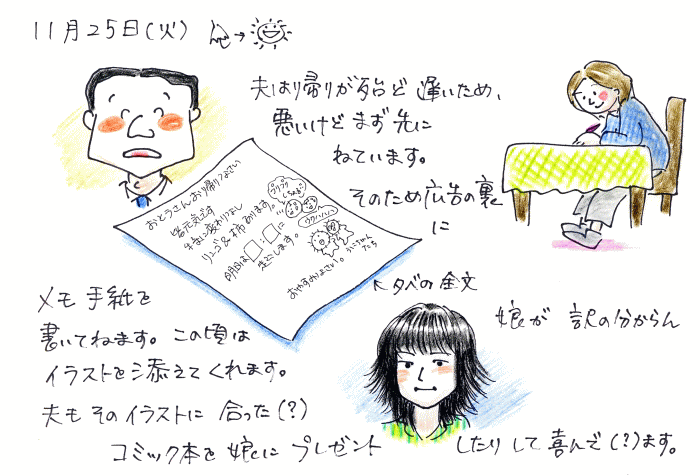 11月25日(火)
夫は帰りが殆ど遅いため、
悪いけどまず先に
ねています。
そのため広告の裏
に
おとうさんお帰りなさい
皆元気です
リンゴ&柿あります。
明日は□:□に
おやすみなさい。
←夕べの全文
メモ手紙を
書いてねます。この頃は
イラストを添えてくれます。
娘が 訳の分からん
夫もそのイラストに合った(?)
コミック本を娘にプレゼント
したりして喜んで(?)ます。